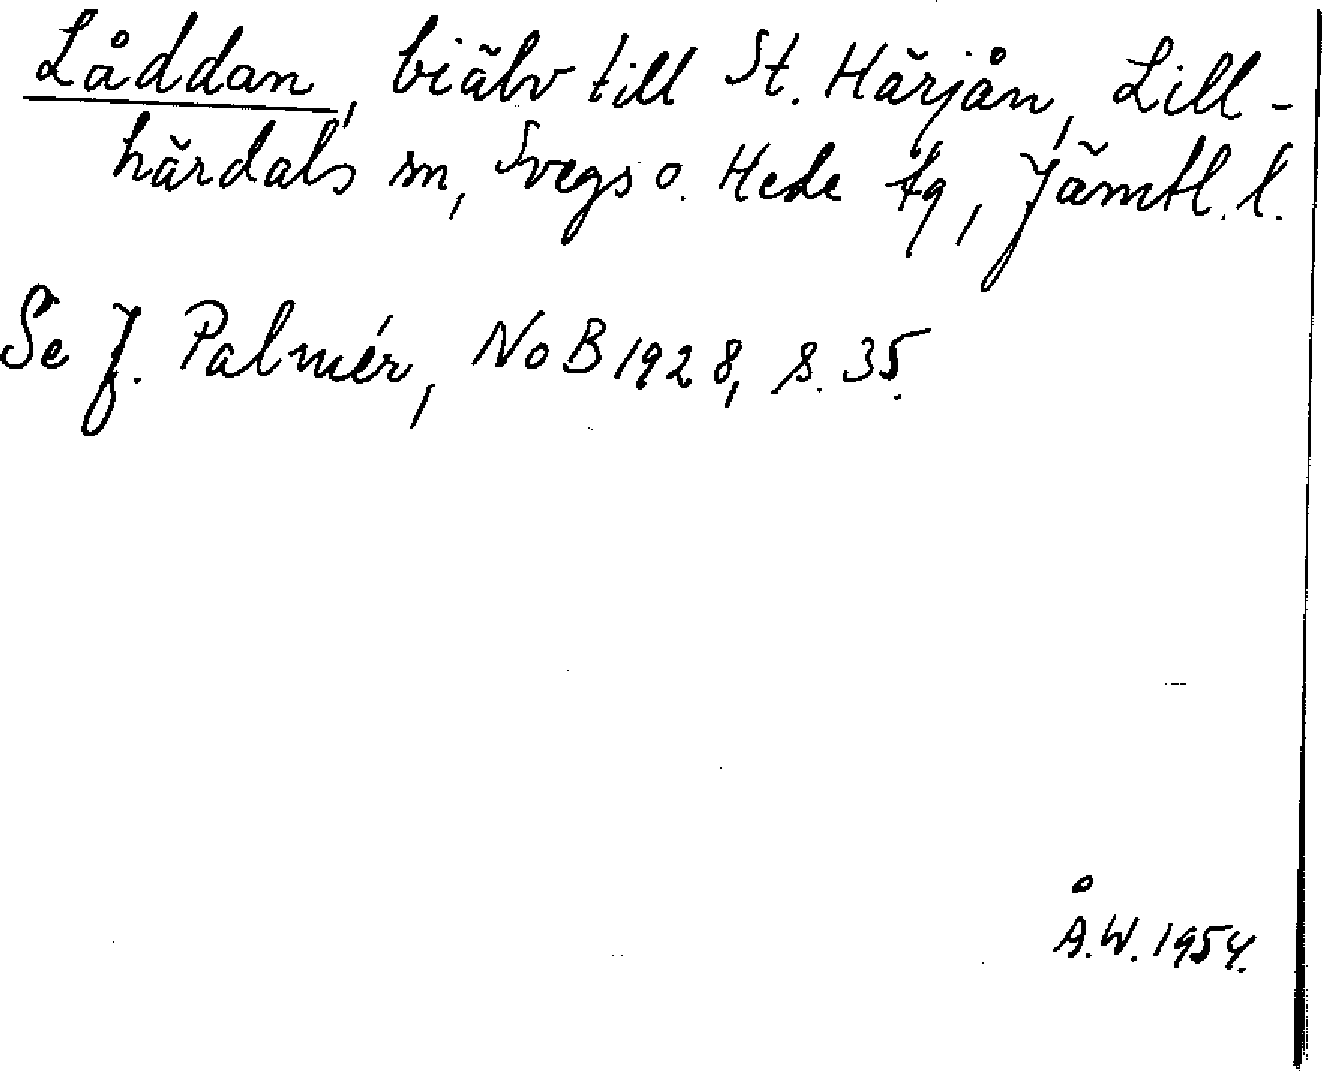 Låddan, biälv till St. Härjån, Lill-
härdals sn, Svegs o. Hede tg, Jämtl. l.
Se J. Palmér, NoB 1928, s. 35.
Å.W. 1954.